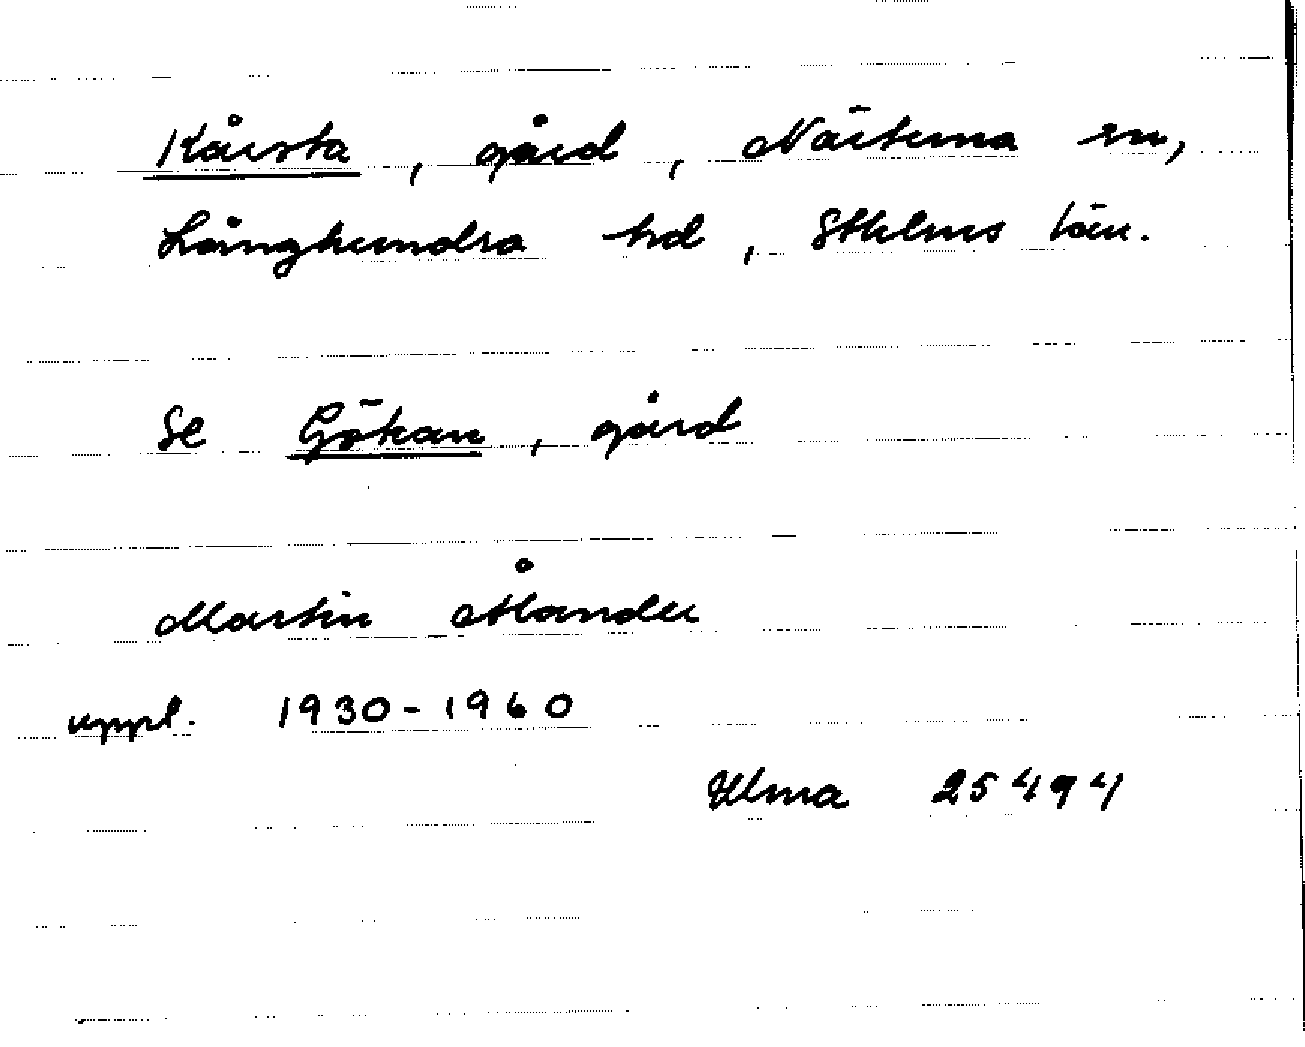 Kårsta, gård, Närtuna sn,
Långhundra hd, Sthlms län.
Se Gökan, gård
Martin Ålander
uppl. 1930-1960
Ulma 25494